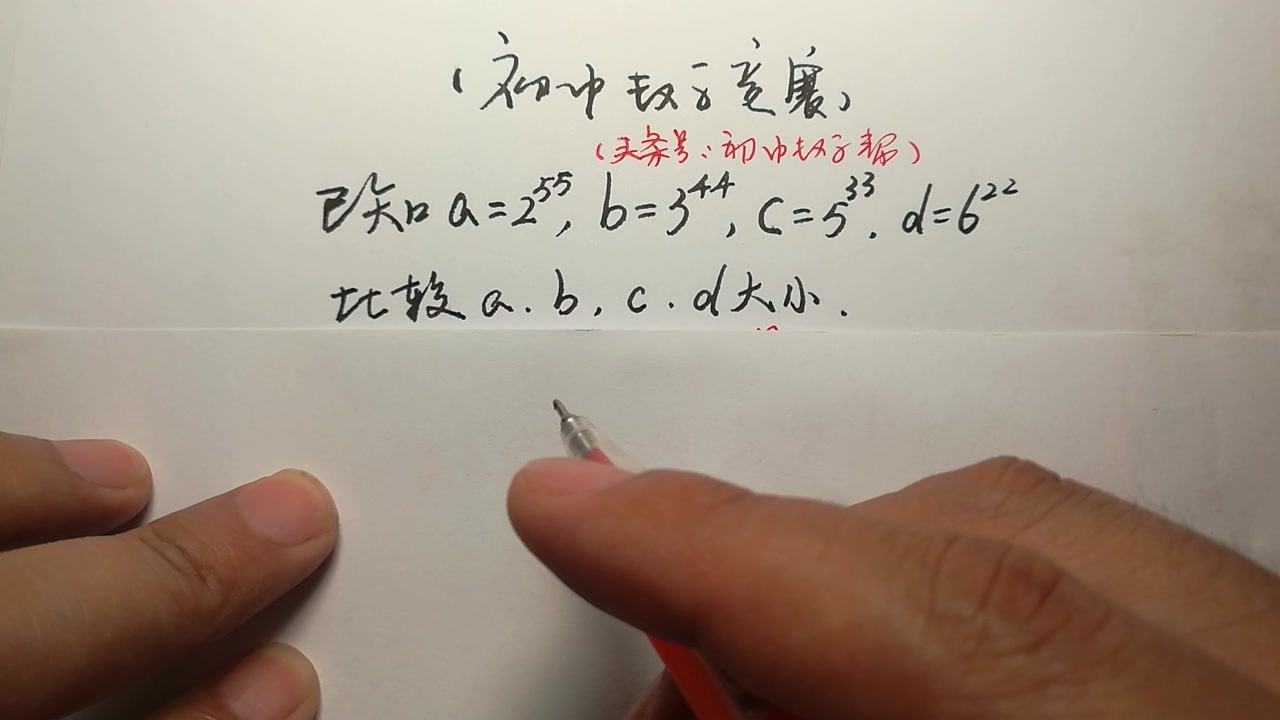 （初中数学竞赛）
（头条号：初中数学帮）
已知 a=2^55, b=3^44, c=5^33. d=6^22
比较 a. b, c. d大小.